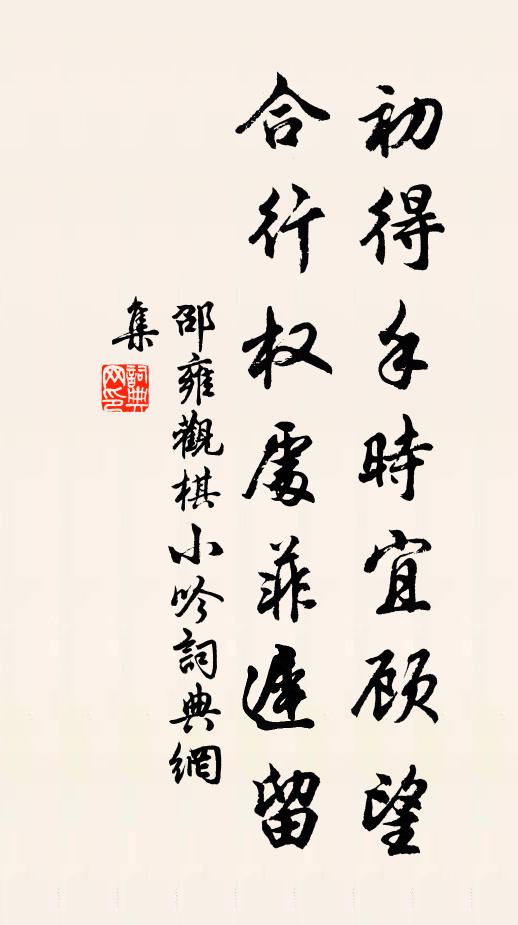 初得手時宜顧望
合行权處菲遲留
邵雍觀棋小吟詞典網
集
詞典網印